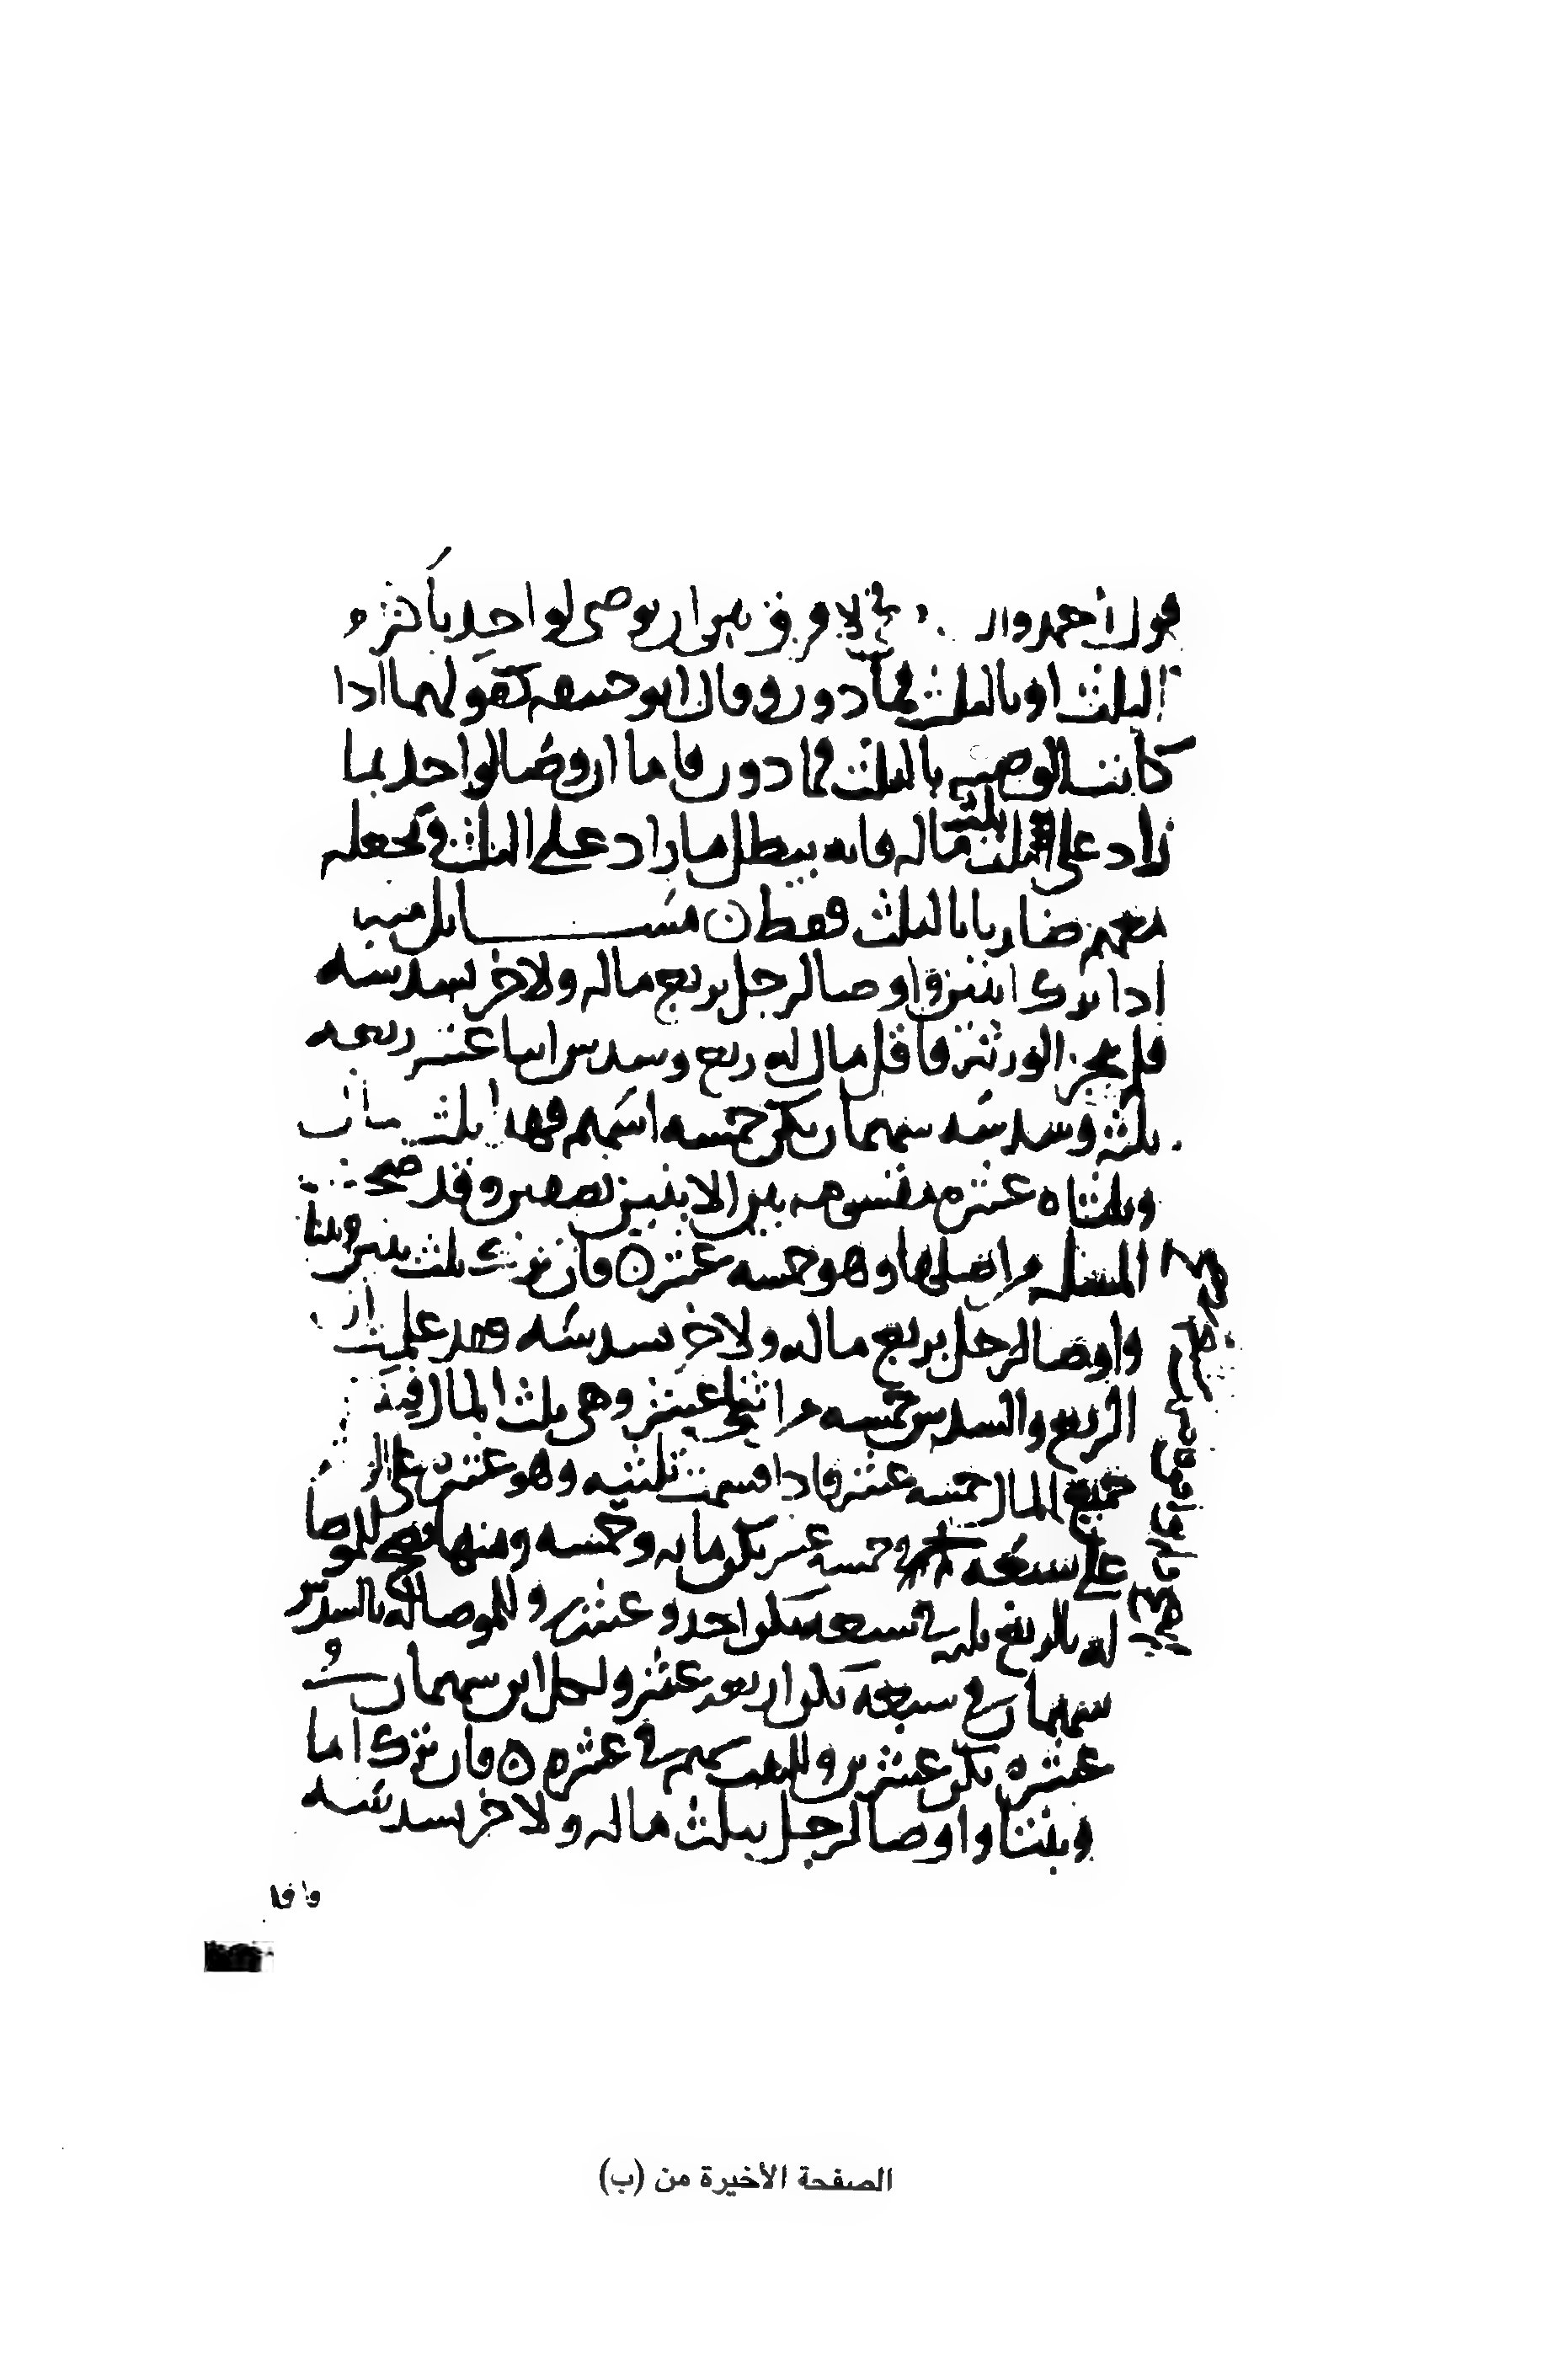 قول احمد لا فرق بين ان يوصى لواحد باكثر
الثلث او بالثلث فما دون وقال ابو حنيفه كقولهما اذا
كانت الوصيه بالثلث فما دون فاما ان وصا لواحد بما
زاد على ثلث ماله فانه يبطل ما زاد على الثلث
ضاربا بالثلث فقط ن مسايل منه
اذا ترك ابنين واوصا لرجل بربع ماله ولاخر بسدسه
فلم يجز الورثة فاقل مال له ربع وسدس اثنا عشر ربعه
ثلثة وسدسه سهمان يكن خمسه اسهم فهذا ثلث
وثلثاه عشره مقسومه بين الابنين نصفين وقد صحت
المسله من اصلها وهو خمسه عشر ن فان ترك ثلث بنين
واوصا لرجل بربع ماله ولاخر بسدسه فقد علمت ان
الربع والسدس خمسه من اثنى عشر وهى ثلث المال
جميع المال خمسه عشر فاذا قسمت ثلثيه وهو عشره على
على سبعه خمسه عشر يكن مايه وخمسه ومنها تصح للموصا
له بالربع ثلثه فى سبعه يكن احد وعشرين وللموصا له بالسدس
سهمان فى سبعه يكن اربعه عشر ولكل ابن سهمان فى
عشره يكن عشرين وللبنت سهم فى عشره ن فان ترك اما
وبنتا واوصا لرجل بثلث ماله ولاخر بسدسه
الصفحة الأخيرة من (ب)